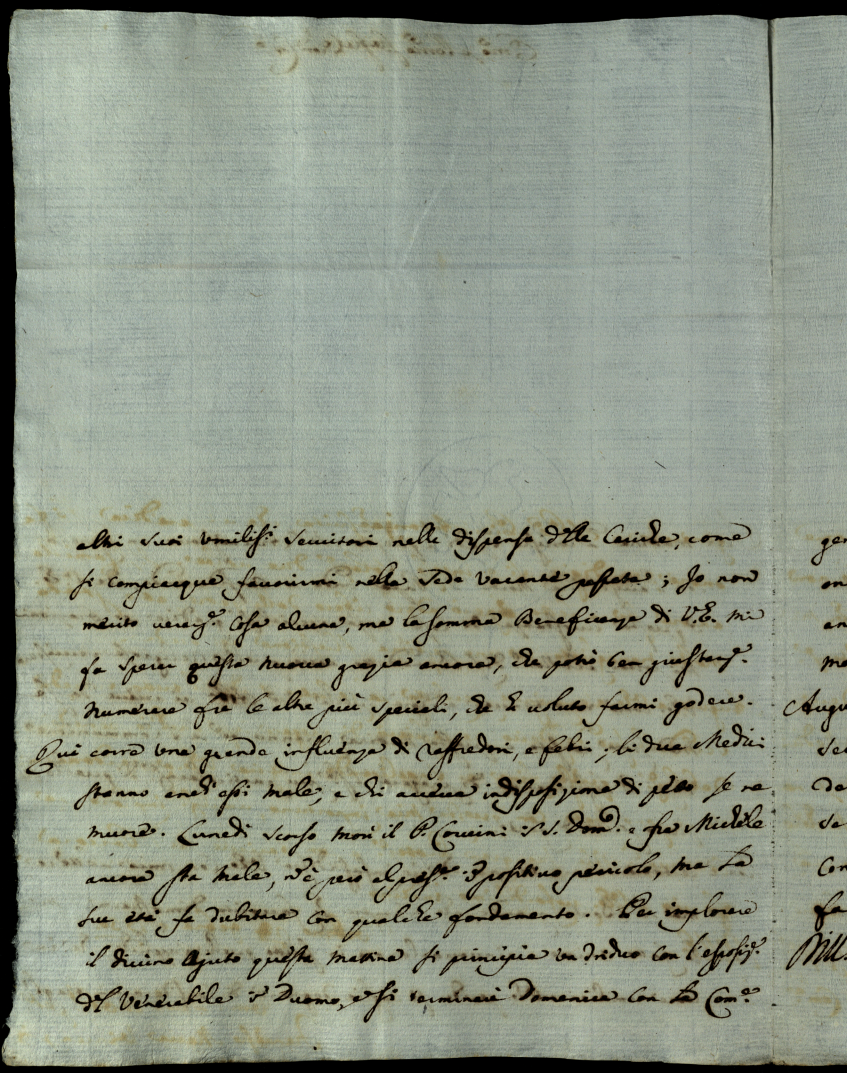 altri suoi umiliss.i servitori nella dispensa delle Cariche, come
si compiacque favorirmi nella sede vacante passata; Io non
merito veram.e cosa alcuna, ma la somma Beneficenza di V.E. mi
fa sperar questa nuova grazia ancora, che potrò ben giustam.e
numerare frà le altre più speciali, che hà voluto farmi godere.
Quì corre una grande influenza di raffredori, e febri; li due Medici
stanno anch'essi male, e chi aveva indisposizione di petto se ne
muore. Lunedì scorso morì il P. Corvini S. Dom.o e fra Michele
ancora sta male, però al pres.te positivo pericolo, ma la
sua età fa dubitare con qualche fondamento. Per implorare
il divino ajuto questa mattina si principia un triduo con l'esposiz.e
del Venerabile in Duomo, e si terminerà Domenica con la Com.e
ge
on
an
me
Augu
se
de
se
Con
fa